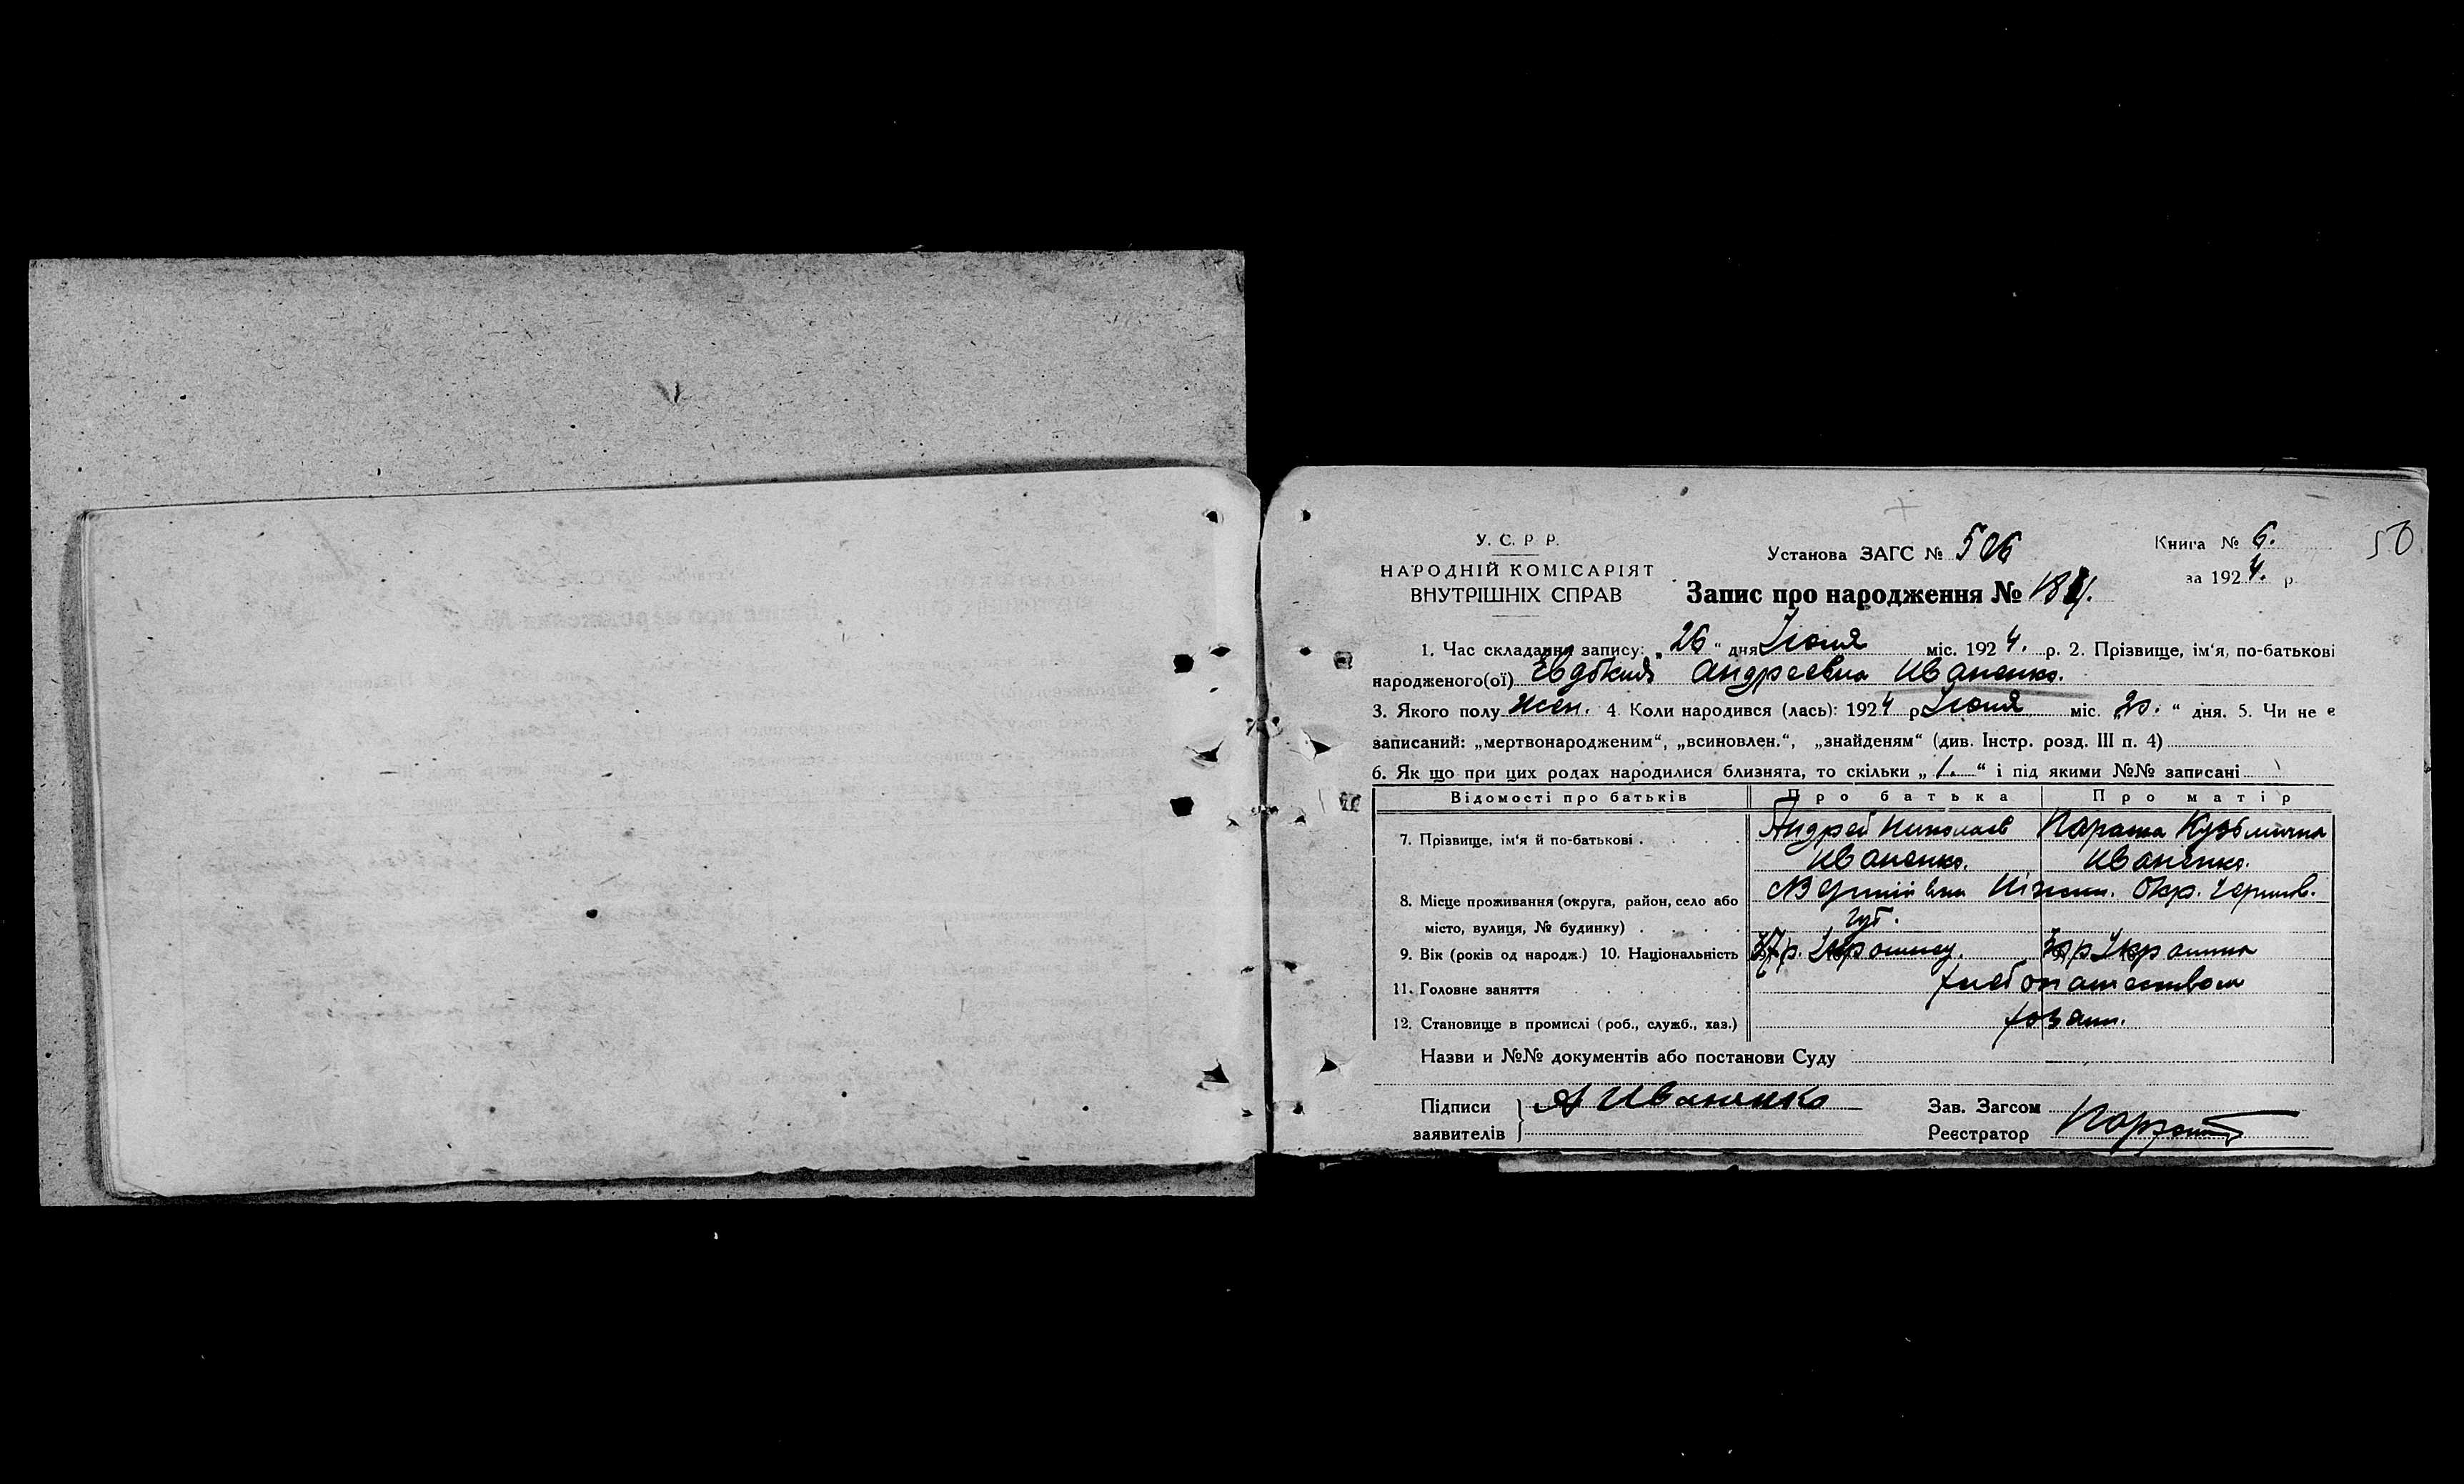 У. С. Р. Р.
НАРОДНІЙ КОМІСАРІЯТ
ВНУТРІШНІХ СПРАВ
Установа ЗАГС № 506
Запис про народження №
Книга № 6.
за 1924. р.
50
1. Час складання запису: „26“ дня Іюня міс. 1924. р. 2. Прізвище, ім'я, по-батькові
народженого(ої) Евдокия Андреевна Иваненко.
3. Якого полу жен. 4. Коли народився (лась): 1924 р Іюня міс. „20.“ дня. 5. Чи не є
записаний: „мертвонародженим“, „всиновлен.“, „знайденям“ (див. Інстр. розд. III п. 4)
6. Як що при цих родах народилися близнята, то скільки „1.“ і під якими №№ записані
Відомості про батьків Про батька Про матір
7. Прізвище, ім'я й по-батькові . Андрей Николаев Параска Кузьмична
Иваненко. Иваненко.
8. Місце проживання (округа, район, село або Ніжин. Окр. Чернигов.
місто, вулиця, № будинку) . губ.
9. Вік (років од народж.) 10. Національність 37 р. Украинец.
11. Головне заняття хлебопашеством
12. Становище в промислі (роб., служб., хаз.) хозяин.
Назви и №№ документів або постанови Суду
Підписи А Иваненко Зав. Загсом
заявителів Реєстратор